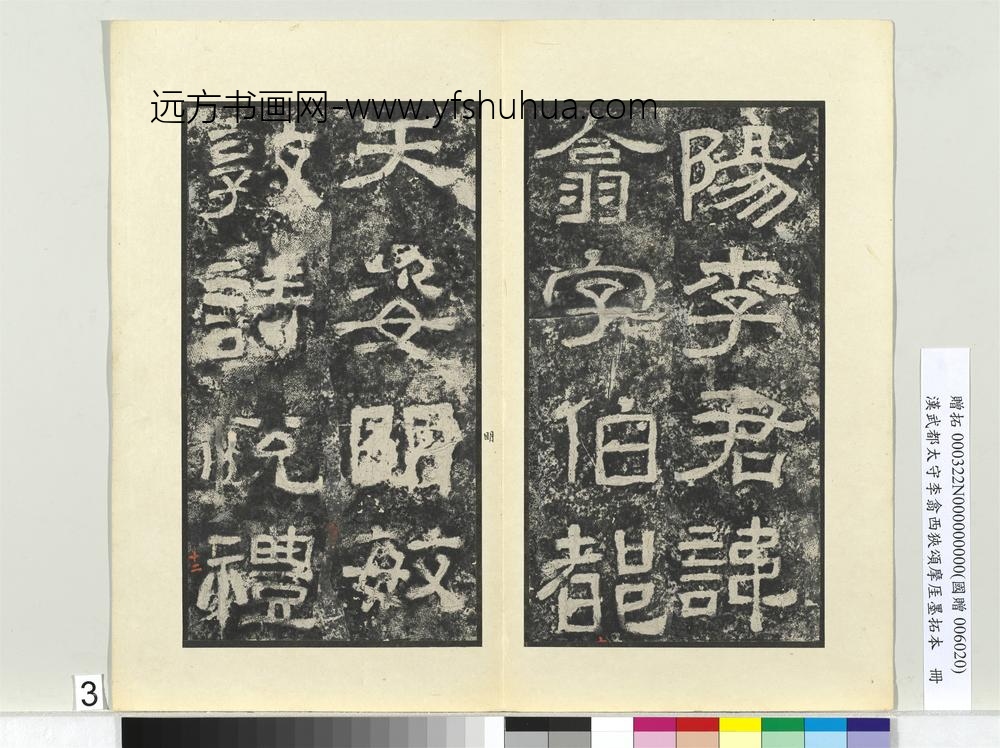 远方书画网-www.yfshuhua.com
陽李君諱
翕字伯都
天姿明敏
敦詩悅禮
明
十二
3
贈拓 000322N000000000(國贈 006020)
漢武都太守李翕西狹頌摩厓墨拓本 冊